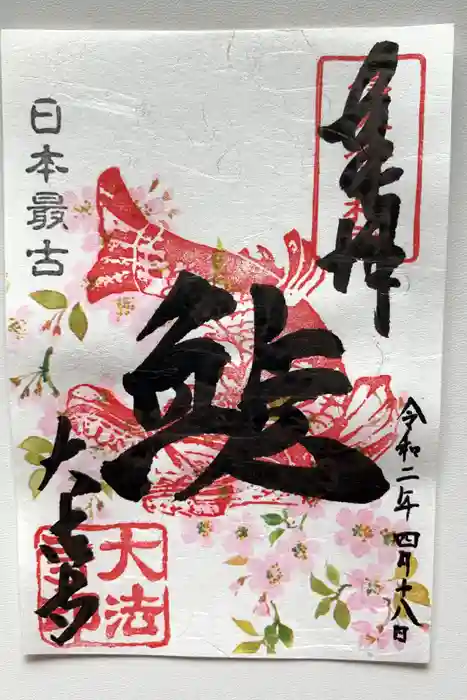 奉拝
令和二年四月十八日
鯱
日本最古
大法寺
大法